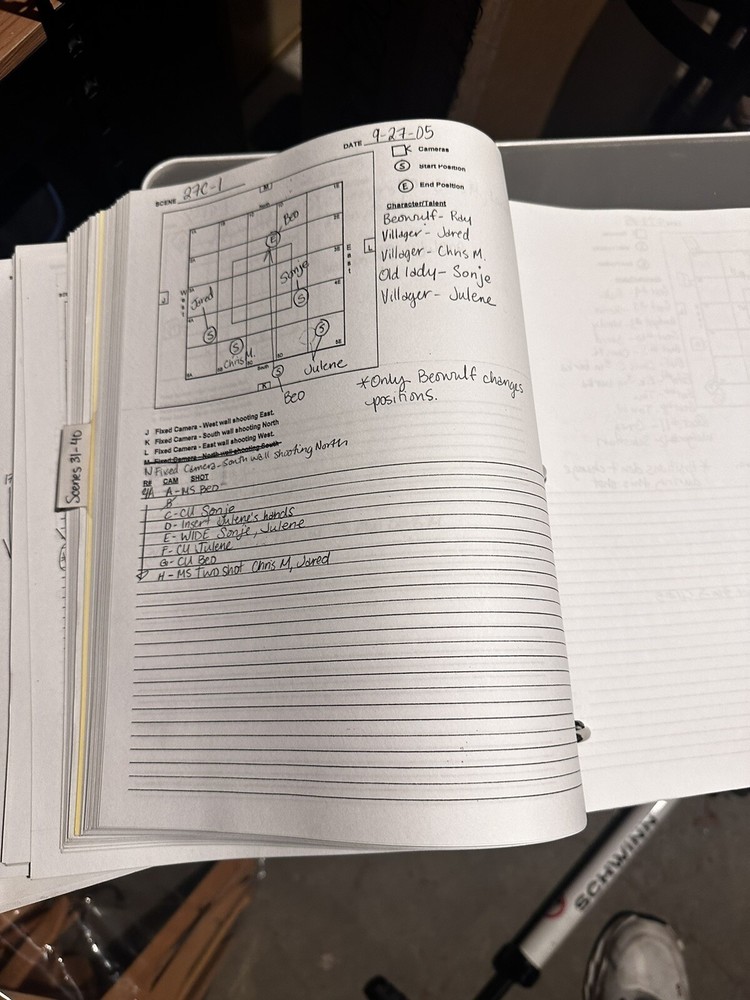 DATE 9-27-05
SCENE 27C-1
Cameras
S Start Position
E End Position
Character/Talent
Beowulf - Ray
Villager - Jared
Villager - Chris M.
Old lady - Sonje
Villager - Julene
M
North
Beo
E
East
L
West
J
Jared
S
Sonje
S
S
Chris M.
S
Julene
South
S
K
Beo
*Only Beowulf changes
positions.
J Fixed Camera - West wall shooting East.
K Fixed Camera - South wall shooting North
L Fixed Camera - East wall shooting West.
M Fixed Camera - North wall shooting South
N Fixed Camera - South wall shooting North
R# CAM SHOT
A - MS Beo
B
C - CU Sonje
D - Insert Julene's hands
E - WIDE Sonje, Julene
F - CU Julene
G - CU Beo
H - MS Two shot Chris M, Jared
Scenes 31-40
SCHWINN